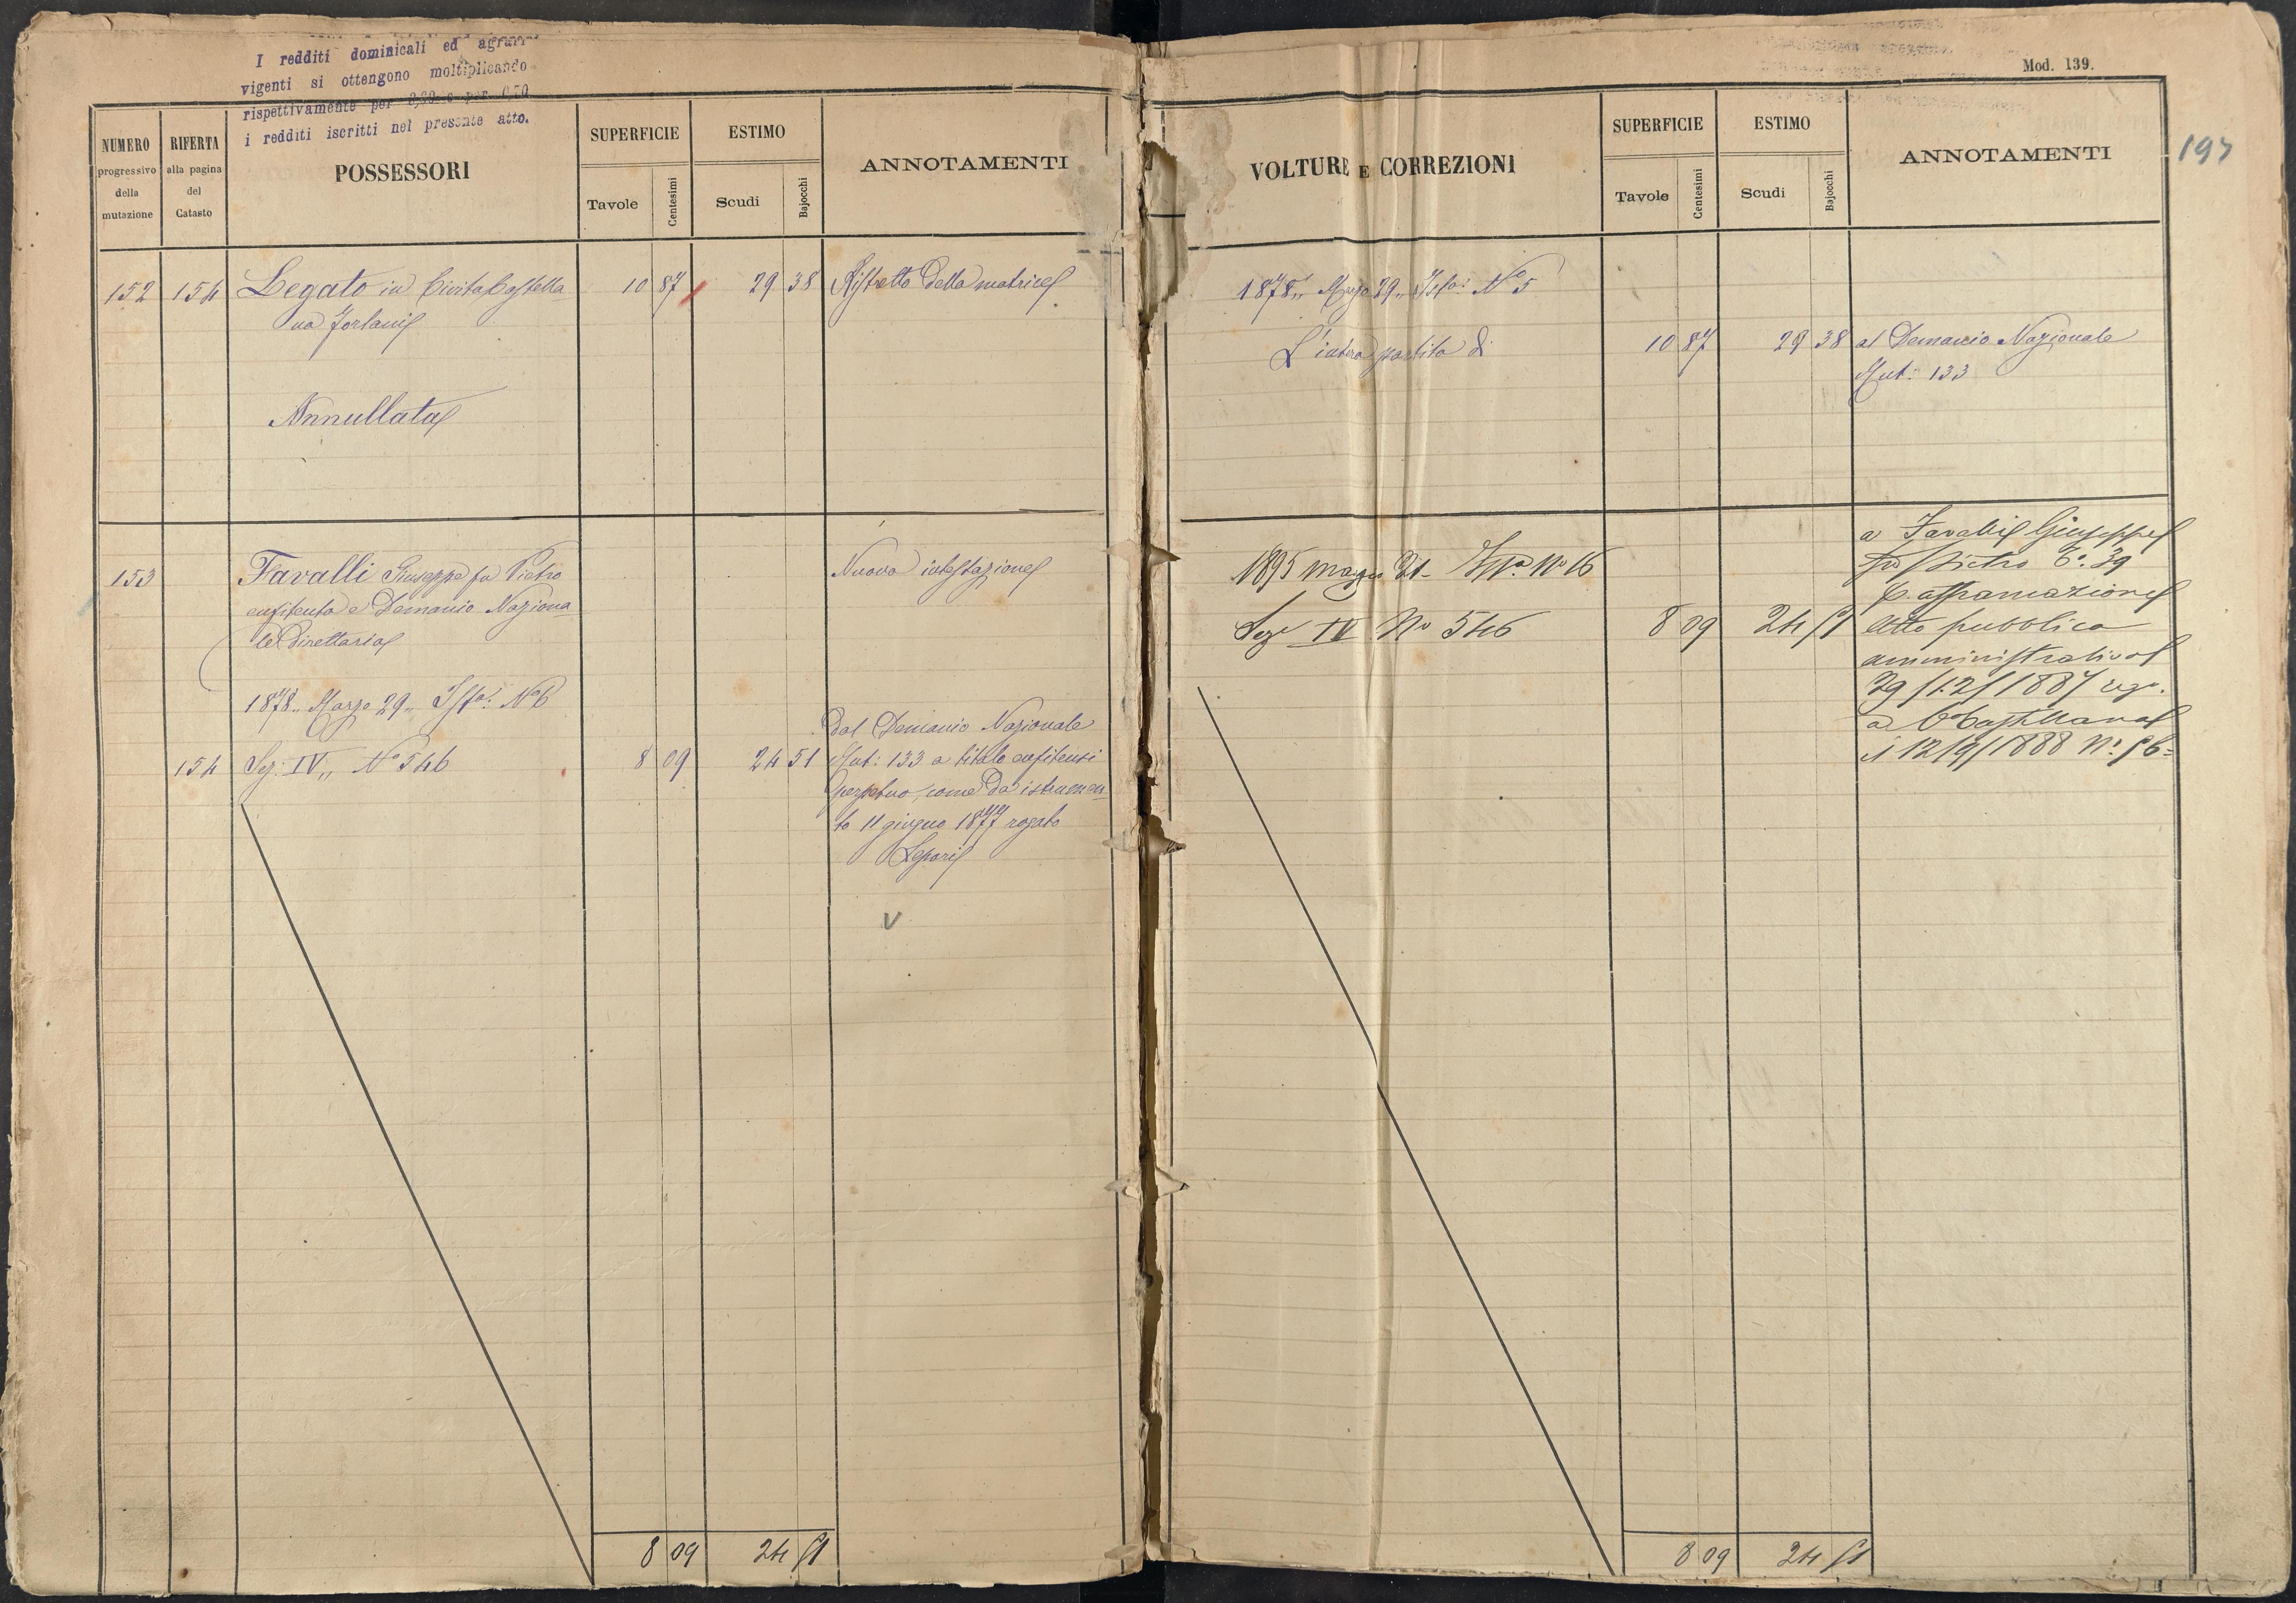 I redditi dominicali ed agrari
vigenti si ottengono moltiplicando
rispettivamente per
i redditi iscritti nel presente atto.
NUMERO progressivo della mutazione
RIFERTA alla pagina del Catasto
POSSESSORI
SUPERFICIE
Tavole Centesimi
ESTIMO
Scudi Bajocchi
ANNOTAMENTI
152 154 Legato in Civita Castella 10 87 29 38 Ristretto della matrice
na
Annullata
153 Favalli Giuseppe fu Pietro Nuova intestazione
enfiteuta e Demanio Naziona
le Direttario
1878 " Marzo 29 " Issa: N° 6
Dal Demanio Nazionale
154 Sez: IV " N° 546 8 09 24 51 Mut: 133 a titolo enfiteusi
perpetuo, come da istrumen
to 11 giugno 1877 rogato
Leparis
V
8 09 24 51
Mod. 139.
197
VOLTURE E CORREZIONI
SUPERFICIE
Tavole Centesimi
ESTIMO
Scudi Bajocchi
ANNOTAMENTI
1878 " Marzo 29 " N° 5
L'intera partita di 10 87 29 38 al Demanio Nazionale
Mut: 133
a Favalli Giuseppe
1895 marzo 21 - N° 16 fu Pietro 39
p affrancazione
Sez IV N° 546 8 09 24 51 atto pubblico
amministrativo
29/12/1887 reg.
a C Castellana
il 12/9/1888 N°. 56=
8 09 24 51